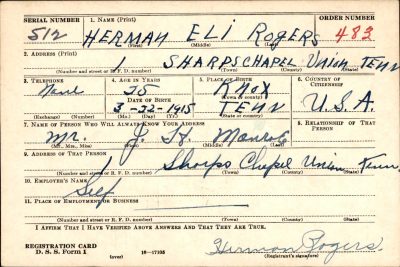 SERIAL NUMBER 1. NAME (Print) ORDER NUMBER
512 HERMAN ELI ROGERS 483
(First) (Middle) (Last)
2. ADDRESS (Print)
1 SHARPSCHAPEL Union TENN
(Number and street or R. F. D. number) (Town) (County) (State)
3. TELEPHONE 4. AGE IN YEARS 5. PLACE OF BIRTH 6. COUNTRY OF CITIZENSHIP
None 25 KNOX
DATE OF BIRTH (Town or county)
3-22-1915 TENN U.S.A.
(Exchange) (Number) (Mo.) (Day) (Yr.) (State or country)
7. NAME OF PERSON WHO WILL ALWAYS KNOW YOUR ADDRESS 8. RELATIONSHIP OF THAT PERSON
Mr. J. H. Monroe
(Mr., Mrs., Miss) (First) (Middle) (Last)
9. ADDRESS OF THAT PERSON
1 Sharps Chapel Union Tenn.
(Number and street or R. F. D. number) (Town) (County) (State)
10. EMPLOYER'S NAME
Self
11. PLACE OF EMPLOYMENT OR BUSINESS
(Number and street or R. F. D. number) (Town) (County) (State)
I AFFIRM THAT I HAVE VERIFIED ABOVE ANSWERS AND THAT THEY ARE TRUE.
REGISTRATION CARD
D. S. S. FORM 1 (over) 16-17105 Herman Rogers.
(Registrant's signature)